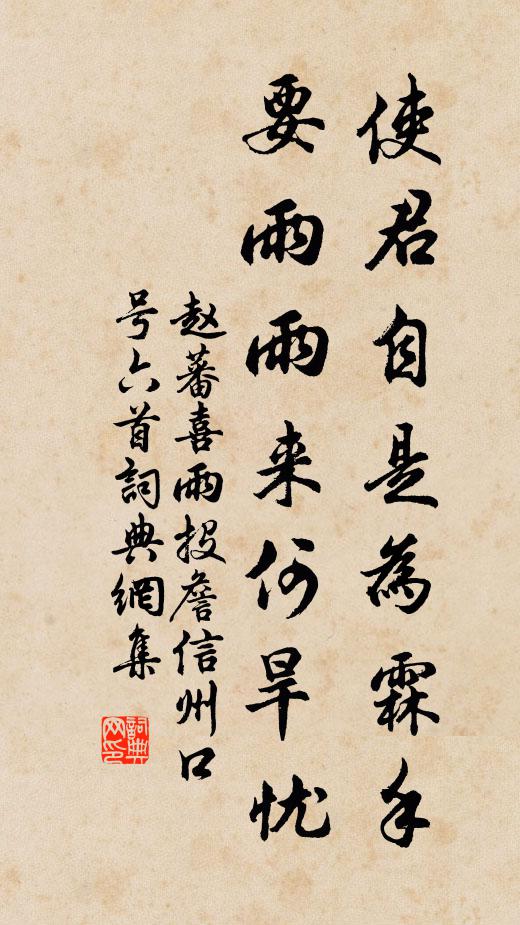 使君自是為霖手
要雨雨来何旱忧
赵蕃喜雨投詹信州口
号六首詞典網集
詞典
网印